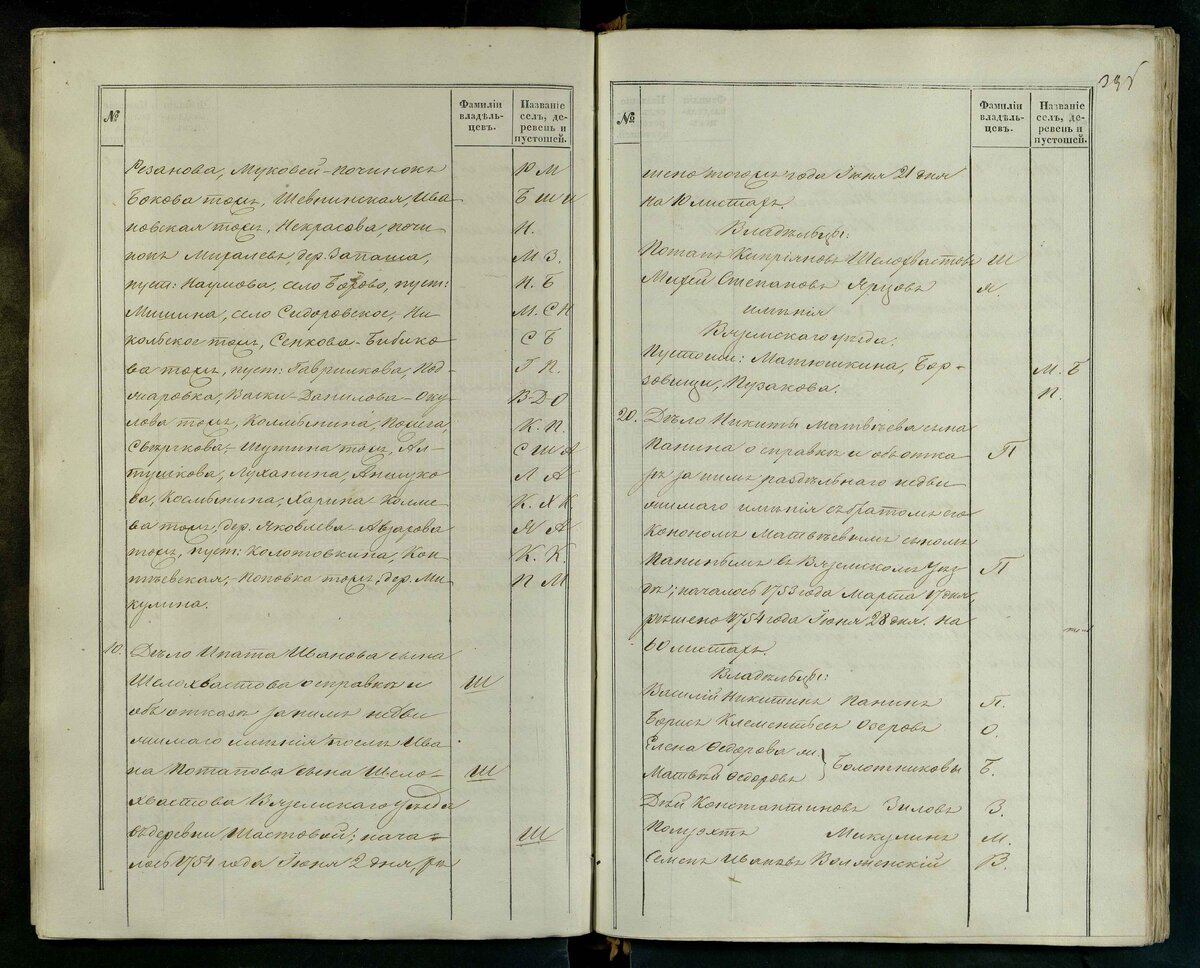 №
Фамиліи владѣль-цевъ.
Названіе селъ, де-ревень и пустошей.
Резанова, Муковей-починокъ Р М
Бокова томъ, Шевнинская, Ива Б Ш И
новская томъ, Некрасова, почи Н.
нокъ Михалевъ, дер. Запаша, М З.
пуст: Наумова, село Борово, пуст: Н. Б
Мишина, село Сидоровское, Ни М. С Н
кольское томъ, Сенкова-Бибико С Б
ва томъ, пуст: Гаврилкова, Под Г П.
маровка, Васки-Данилова-Оку В-Д О
лова томъ, Колмынина, Полега, К. П.
Свиркова, Шутина томъ, Ал- С Ш А
тушкова, Луханина, Анашуко Л А
ва, Косьмынина, Харина-Холме К. Х К.
ва томъ, дер. Яковлева-Авзарова Я А
томъ, пуст: Колотовкина, Кон К. К.
тѣевская, Поповка томъ, дер. Ми П М
кулина.
10. Дѣло Ипата Иванова сына
Шелохвастова о справкѣ и Ш
объ отказѣ за нимъ недви
жимаго имѣнія послѣ Ива
на Потапова сына Шело- Ш
хвастова Вяземскаго уѣзда
въ деревни Шастовой; нача- Ш
лось 1754 года Іюня 2 дня, рѣ
№
Фамиліи владѣль-цевъ.
Названіе селъ, де-ревень и пустошей.
шено тогожъ года Іюня 21 дня
на 10 листахъ.
Владѣльцы:
Потапъ Кипріяновъ Шелохвастовъ Ш
Михей Степановъ Ярцовъ Я.
имѣнія
Вяземскаго уѣзда.
Пустоши: Матюшкина, Бор- М. Б
зовица, Пузакова. П.
20. Дѣло Никиты Матвѣева сына
Панина о справкѣ и объ отка П
зѣ за нимъ раздѣльнаго недви
жимаго имѣнія съ братомъ его
Конономъ Матвѣевымъ сыномъ
Панинымъ въ Вяземскомъ уѣз П
дѣ; началось 1753 года Марта 17 дня,
рѣшено 1754 года Іюня 28 дня. на
60 листахъ.
Владѣльцы:
Василій Никитинъ Панинъ П.
Борисъ Клементьевъ Озеровъ О.
Елена Ѳедорова
Матвѣй Ѳедоровъ } Болотниковы Б.
Дѣй Константиновъ Зиловъ З.
Полуэхтъ Микулинъ М.
Семенъ Ивановъ Волженскій В.